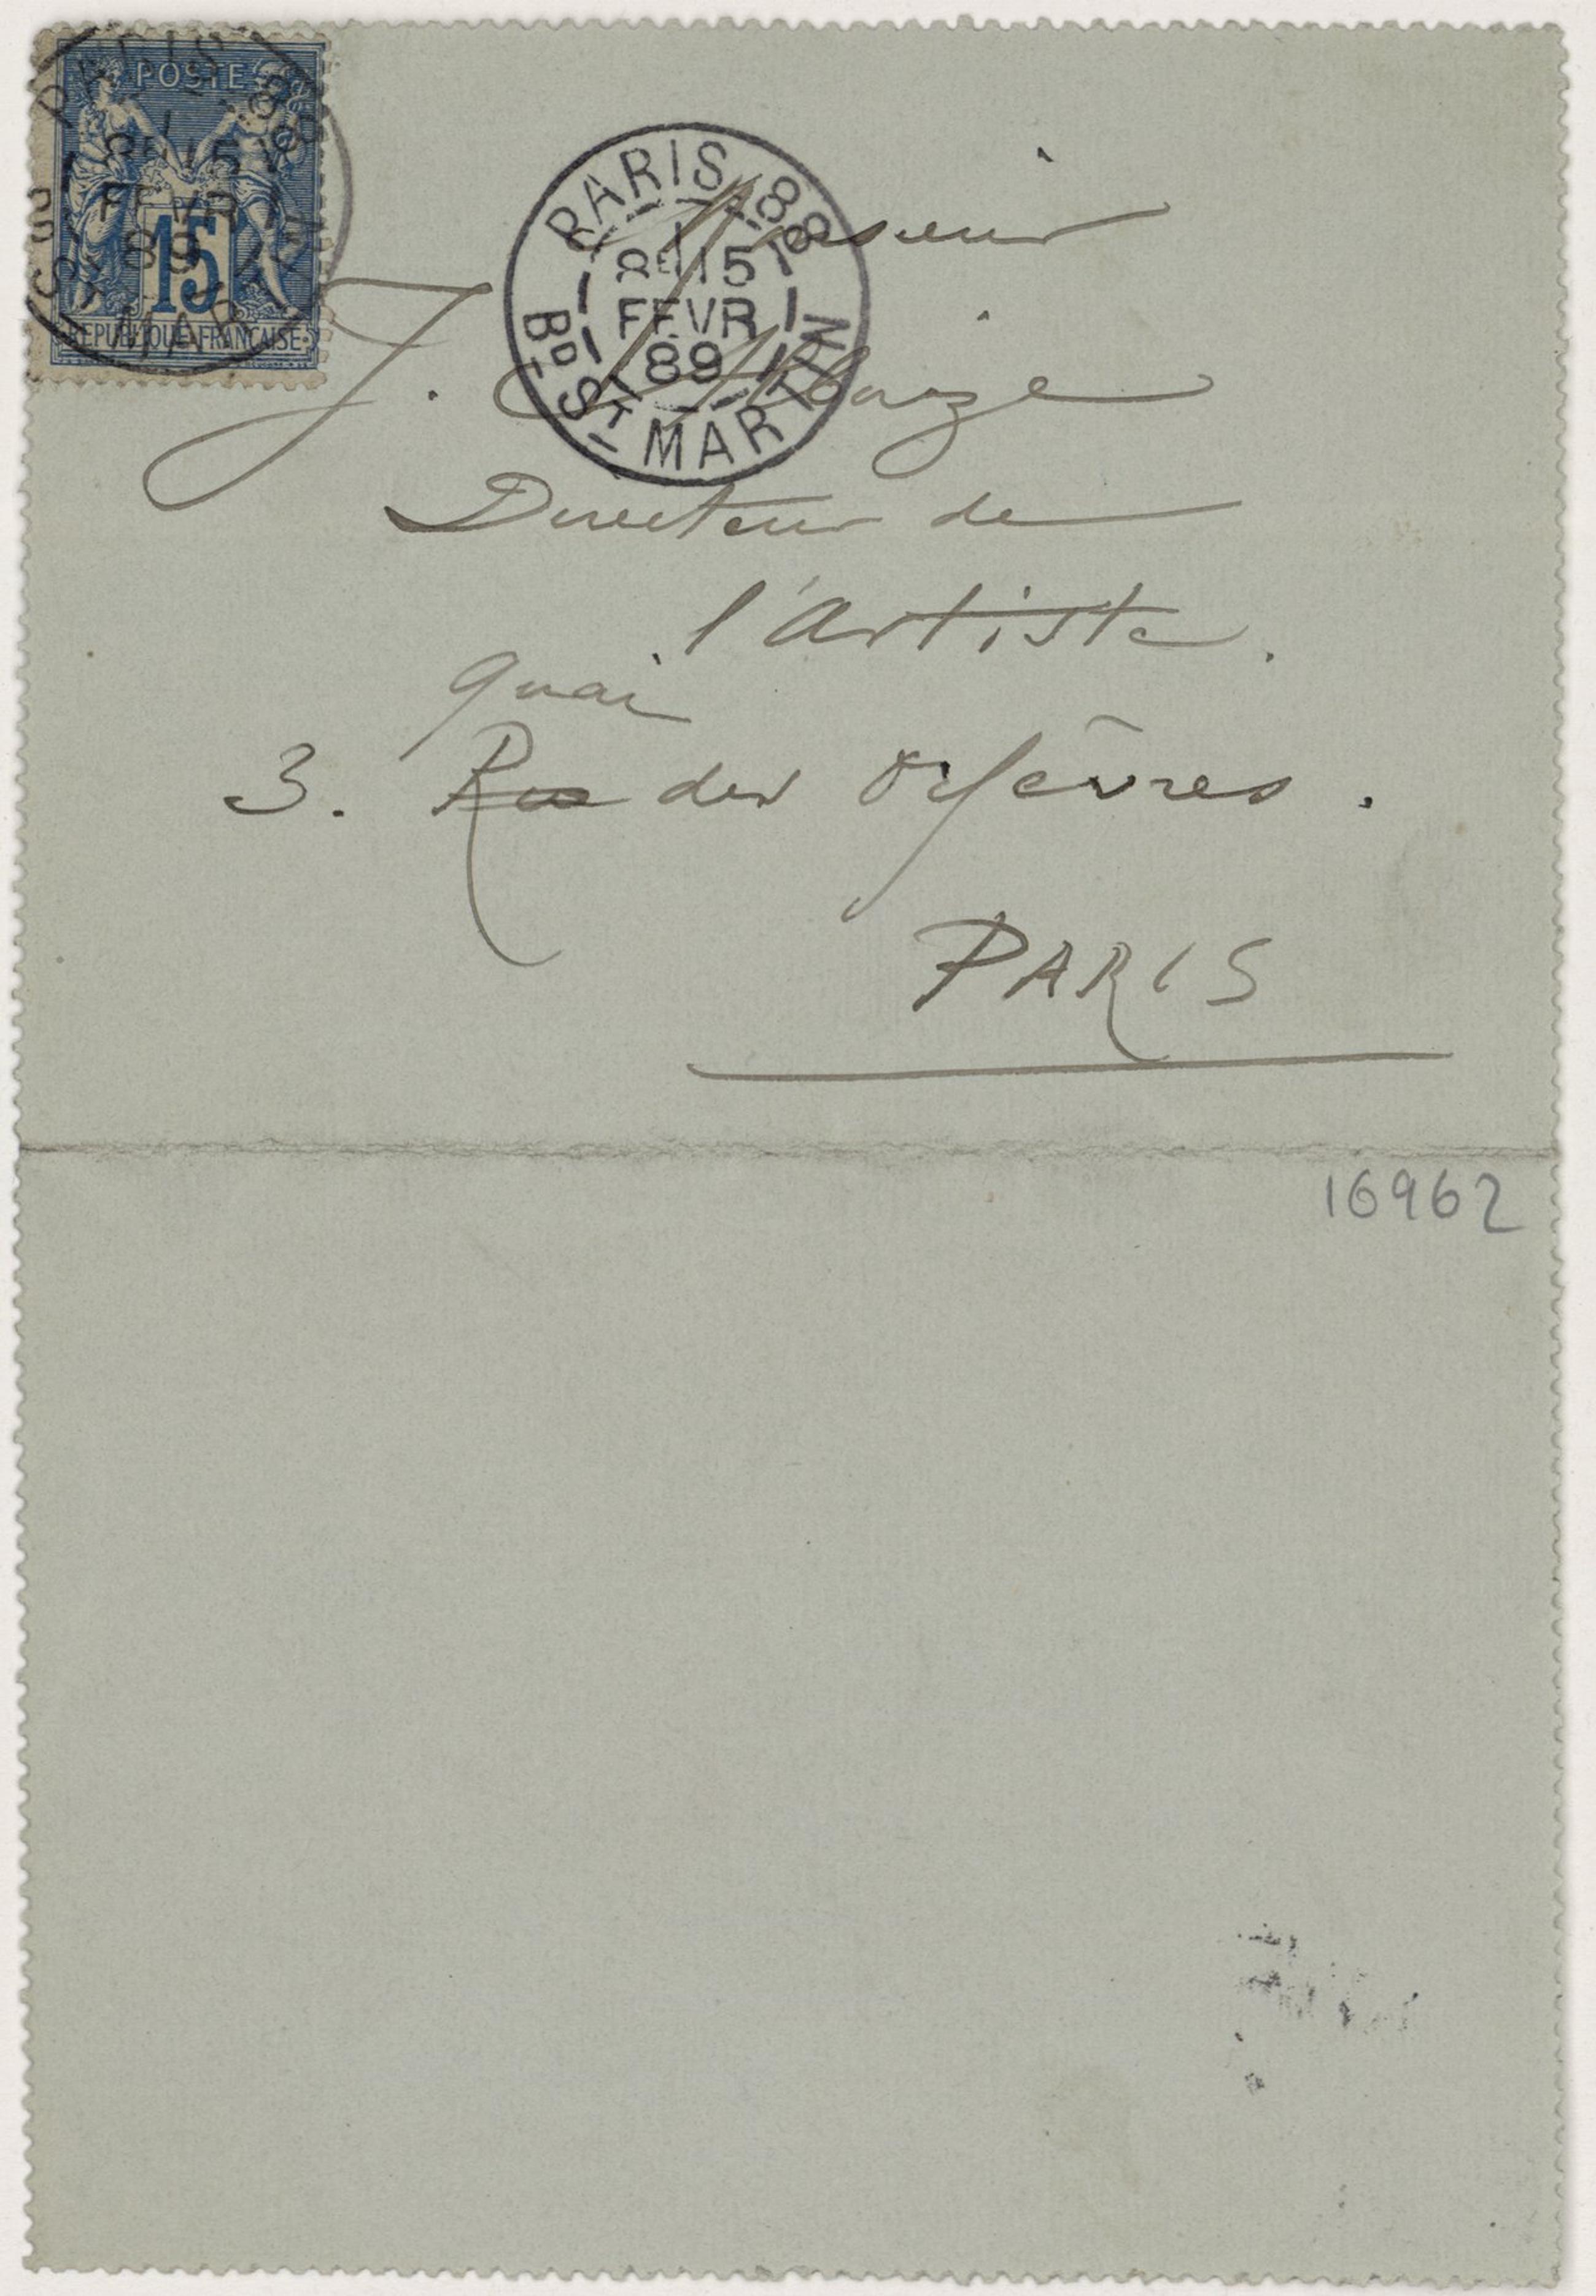 POSTE
15
REPUBLIQUE FRANÇAISE
PARIS 88
8E 15
FEVR
89
BD ST MARTIN
PARIS 88
8E 15
FEVR
89
BD ST MARTIN
Monsieur
J. Alboize
Directeur de
l'Artiste.
quai
3. Rue des Orfêvres.
PARIS
16962